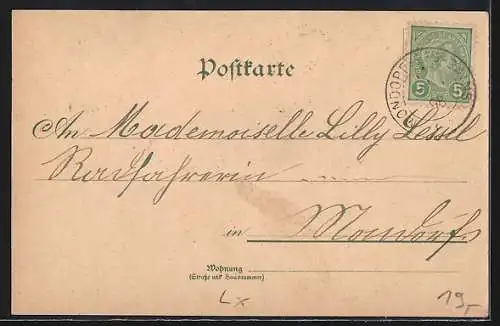 Postkarte
5 5
MONDORF
An Mademoiselle Lilly Lessel
Radfahrerin
in Mondorf
Wohnung
(Straße und Hausnummer)
Lx
19,-